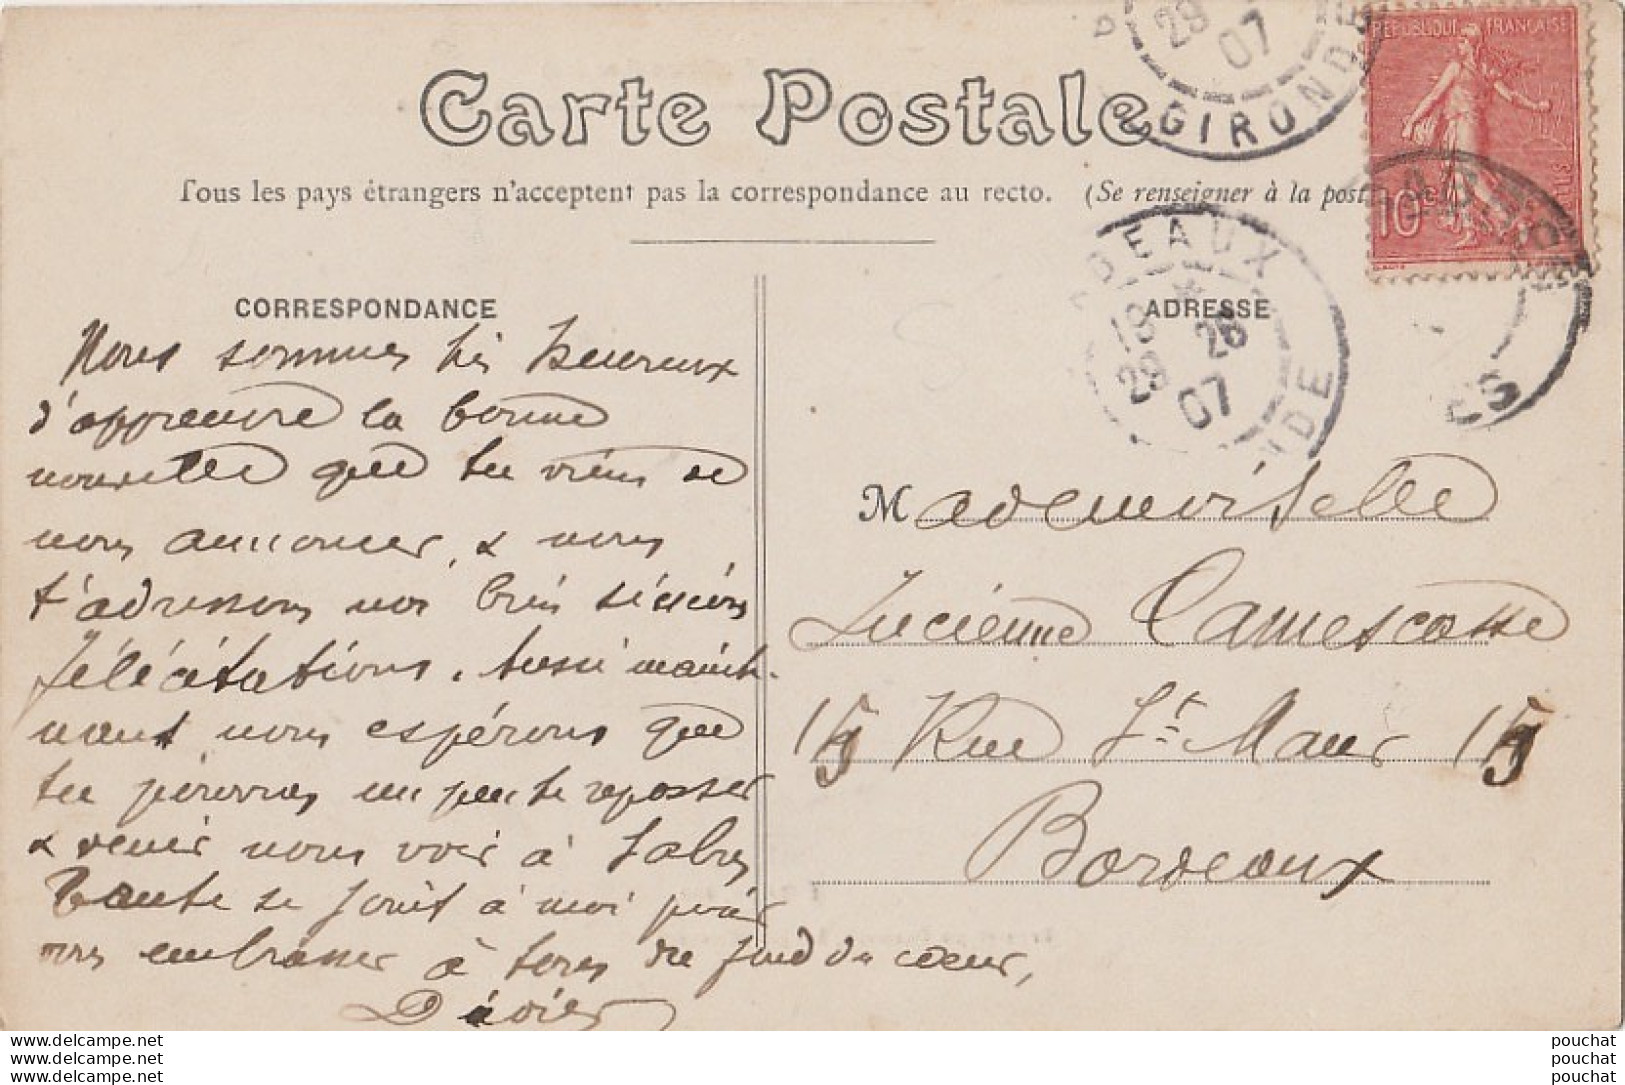 Carte Postale
Tous les pays étrangers n'acceptent pas la correspondance au recto. (Se renseigner à la post
RÉPUBLIQUE FRANÇAISE
POSTES
10c
28
07
GIRONDE
DEAUX
18 26
29
07
NDE
CORRESPONDANCE
Nous sommes très heureux
d'apprendre la bonne
nouvelle que tu viens de
nous annoncer, & nous
t'adressons nos bien sincères
félicitations. Aussi mainte-
nant nous espérons que
tu pourras un peu te reposer
& venir nous voir à Sabres
Tante se joint à moi pour
vous embrasser à tous du fond du cœur,
Didier
ADRESSE
Mademoiselle
Lucienne Camescasse
15 Rue St Maur 15
Bordeaux
www.delcampe.net
www.delcampe.net
www.delcampe.net
pouchat
pouchat
pouchat